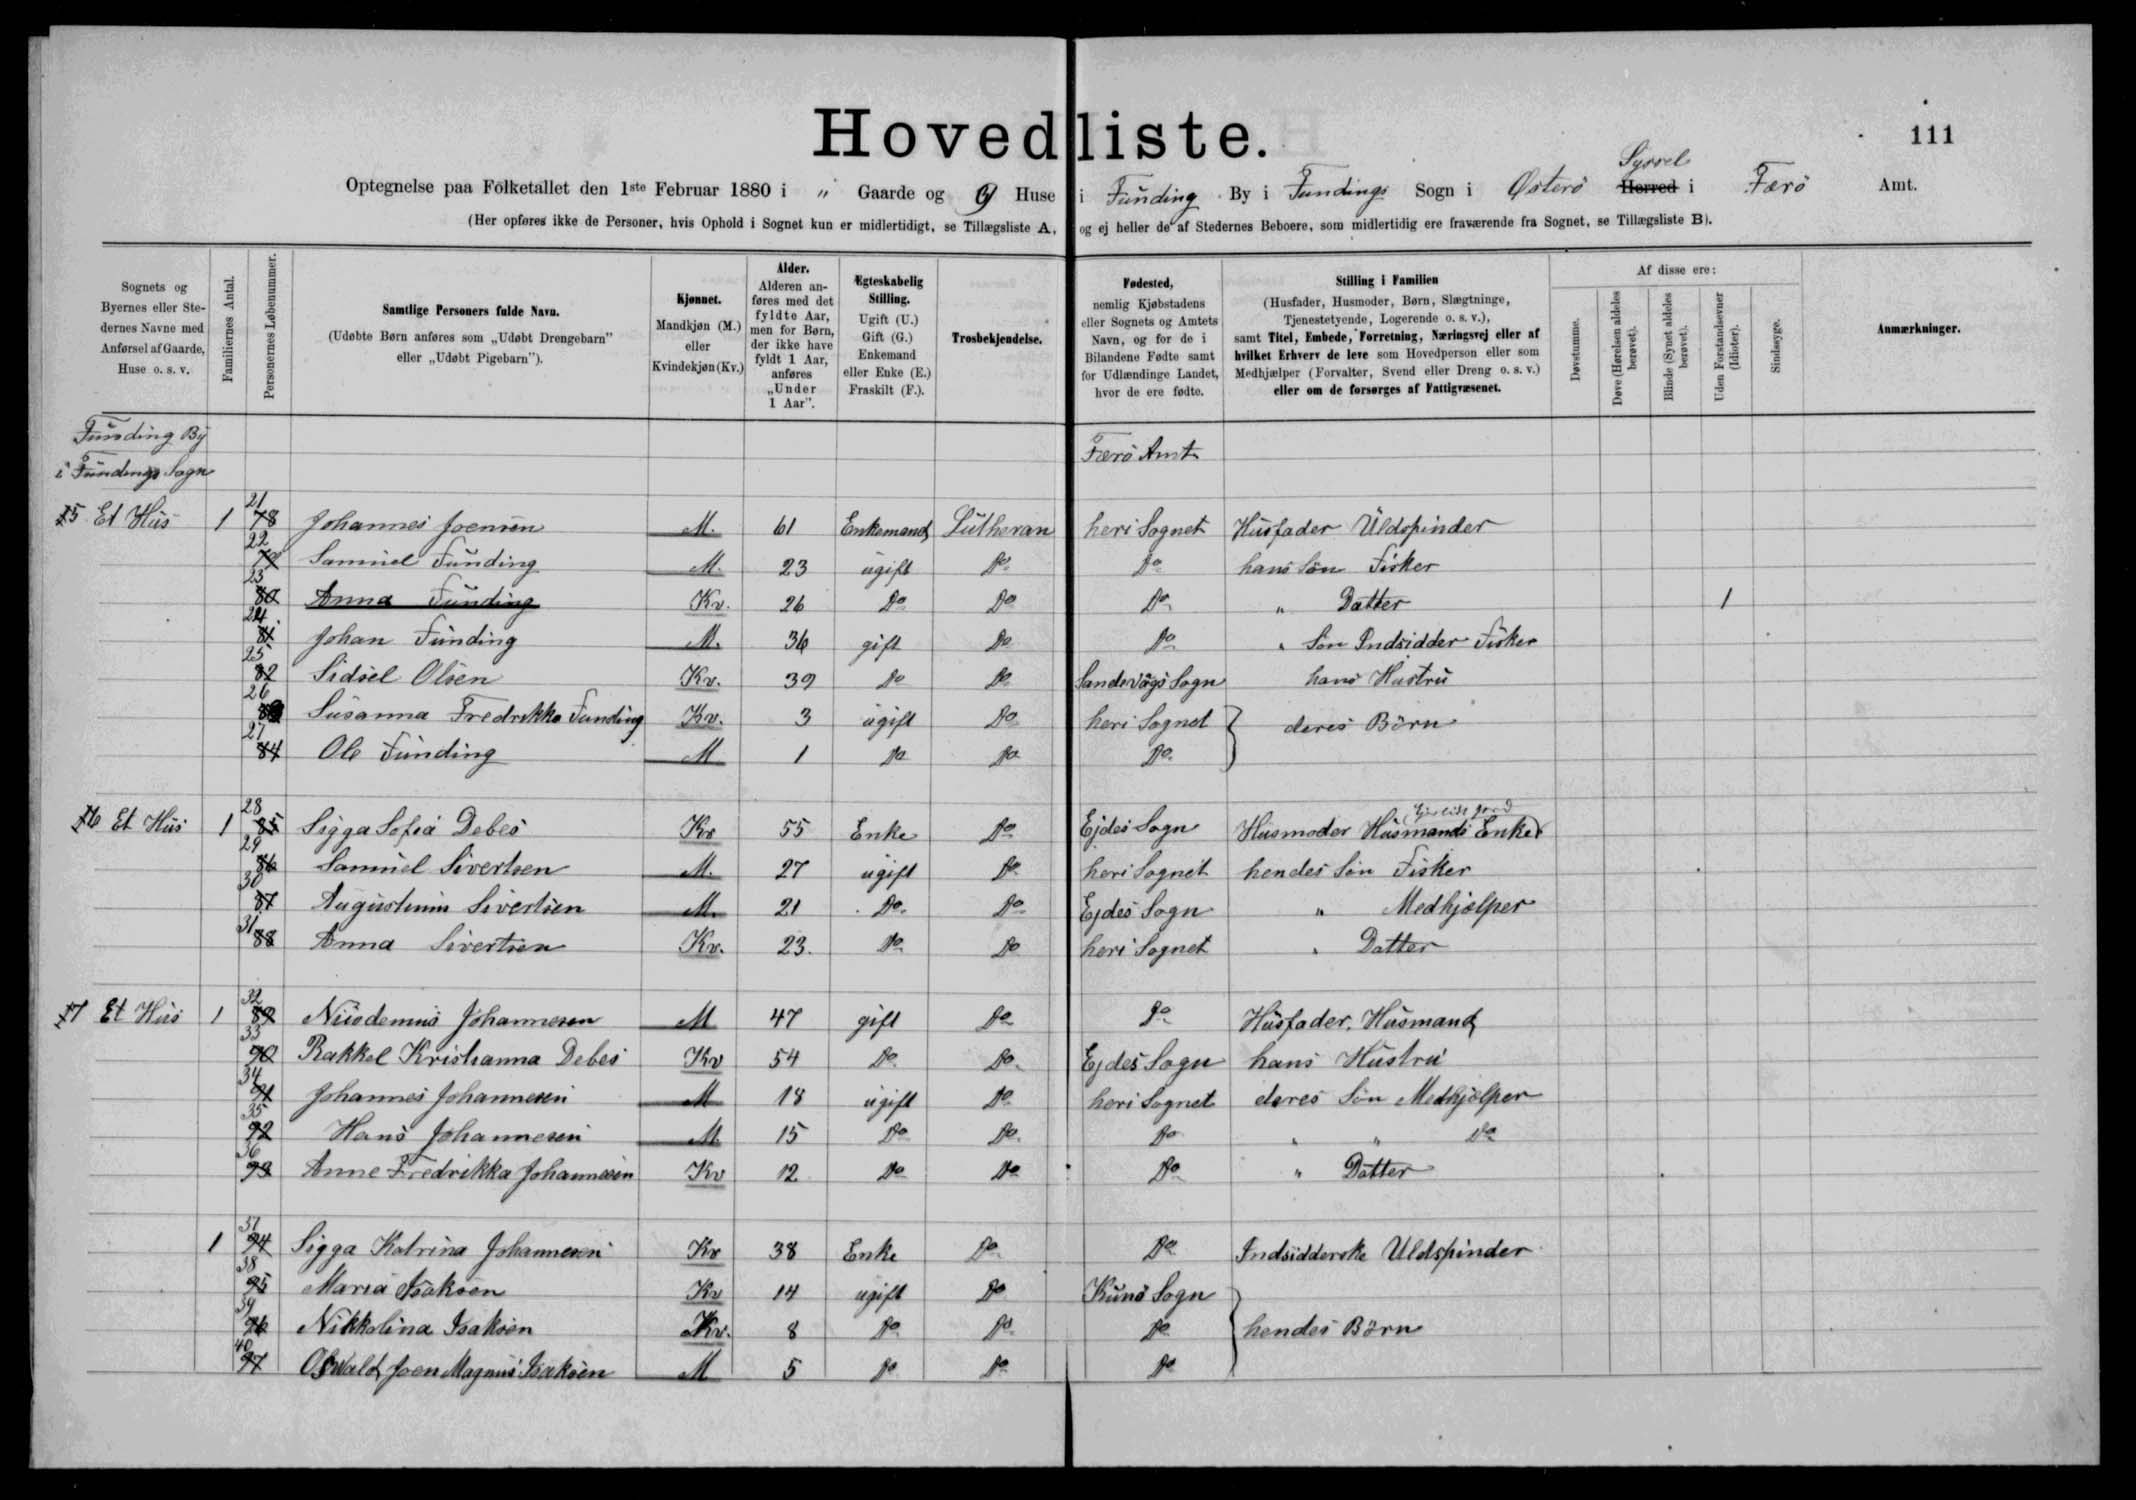 Hovedliste.
111
Optegnelse paa Folketallet den 1ste Februar 1880 i " Gaarde og 9 Huse i Funding By i Fundings Sogn i Østerø Herred Syssel i Færö Amt.
(Her opføres ikke de Personer, hvis Ophold i Sognet kun er midlertidigt, se Tillægsliste A, og ej heller de af Stedernes Beboere, som midlertidig ere fraværende fra Sognet, se Tillægsliste B).
Sognets og Byernes eller Stedernes Navne med Anførsel af Gaarde, Huse o. s. v.
Familiernes Antal.
Personernes Løbenummer.
Samtlige Personers fulde Navn.
(Udøbte Børn anføres som „Udøbt Drengebarn" eller „Udøbt Pigebarn").
Kjønnet.
Mandkjøn (M.) eller Kvindekjøn (Kv.)
Alder.
Alderen anføres med det fyldte Aar, men for Børn, der ikke have fyldt 1 Aar, anføres „Under 1 Aar".
Ægteskabelig Stilling.
Ugift (U.) Gift (G.) Enkemand eller Enke (E.) Fraskilt (F.).
Trosbekjendelse.
Fødested,
nemlig Kjøbstadens eller Sognets og Amtets Navn, og for de i Bilandene Fødte samt for Udlændinge Landet, hvor de ere fødte.
Stilling i Familien
(Husfader, Husmoder, Børn, Slægtninge, Tjenestetyende, Logerende o. s. v.),
samt Titel, Embede, Forretning, Næringsvej eller af hvilket Erhverv de leve som Hovedperson eller som Medhjælper (Forvalter, Svend eller Dreng o. s. v.) eller om de forsørges af Fattigvæsenet.
Af disse ere:
Døvstumme.
Døve (Hørelsen aldeles berøvet).
Blinde (Synet aldeles berøvet).
Uden Forstandsevner (Idioter).
Sindssyge.
Anmærkninger.
Funding By
i Fundings Sogn
Færö Amt
15 Et Hus 1 21 78 Johannes Joensen M. 61 Enkemand Lutheran heri Sognet Husfader Uldspinder
22 79 Samuel Funding M. 23 ugift Do Do hans Søn Fisker
23 80 Anna Funding Kv. 26 Do Do Do " Datter 1
24 81 Johan Funding M. 36 gift Do Do " Søn Indsidder Fisker
25 82 Sidsel Olsen Kv. 39 Do Do Sandevågs Sogn hans Hustru
26 83 Susanna Fredrikka Funding Kv. 3 ugift Do heri Sognet deres Börn
27 84 Ole Funding M 1 Do Do Do
16 Et Hus 1 28 85 Sigga Sofia Debes Kv 55 Enke Do Ejdes Sogn Husmoder Husmands Enke
29 86 Samuel Sivertsen M. 27 ugift Do heri Sognet hendes Søn Fisker
30 87 Augustinus Sivertsen M. 21 Do. Do Ejdes Sogn " Medhjælper
31 88 Anna Sivertsen Kv. 23. Do Do heri Sognet " Datter
17 Et Hus 1 32 89 Niisdemus Johannesen M 47 gift Do Do Husfader. Husmand
33 90 Rakkel Kristianna Debes Kv 54 Do. Do. Ejdes Sogn hans Hustru
34 91 Johannes Johannesen M 18 ugift Do heri Sognet deres Søn Medhjælper
35 92 Hans Johannesen M. 15 Do Do. Do " " Do
36 93 Anne Fredrikka Johannesen Kv 12 Do Do Do " Datter
1 37 94 Sigga Katrina Johannesen Kv 38 Enke Do Do Indsidderske Uldspinder
38 95 Maria Isaksen Kv 14 ugift Do Kunö Sogn
39 96 Nikkolina Isaksen Kv. 8 Do Do Do hendes Börn
40 97 Osvald Joen Magnus Isaksen M 5 Do Do Do